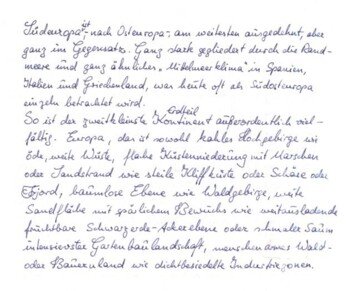 Südeuropa ist - nach Osteuropa - am weitesten ausgedehnt, aber
ganz im Gegensatz. Ganz stark gegliedert durch die Rand-
meere und ganz ähnliches "Mittelmeerklima" in Spanien,
Italien und Griechenland, was heute oft als Südosteuropa
einzeln betrachtet wird.
So ist der zweitkleinste Kontinent Erdteil außerordentlich viel-
fältig. Europa, das ist sowohl kahles Hochgebirge wie
öde, weite Wüste, flache Küstenniederung mit Marschen
oder Sandstrand wie steile Kliffküste oder Schäre oder
Fjord, baumlose Ebene wie Waldgebirge, weite
Sandfläche mit spärlichem Bewuchs wie weitausladende
fruchtbare Schwarzerde-Ackerebene oder schmaler Saum
intensivster Gartenbaulandschaft, menschenarmes Wald-
oder Bauernland wie dichtbesiedelte Industriezonen.